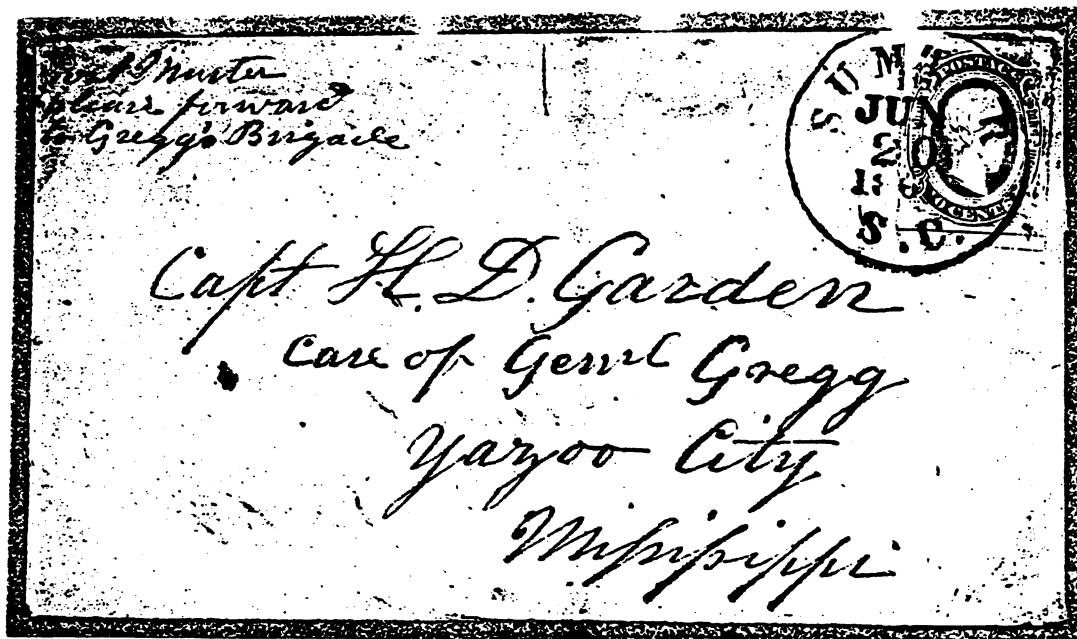 Post Master
please forward
to Gregg's Brigade
SUMTER
JUN
20
S.C.
Capt H. D. Garden
Care of Genrl Gregg
Yazoo City
Missisippi